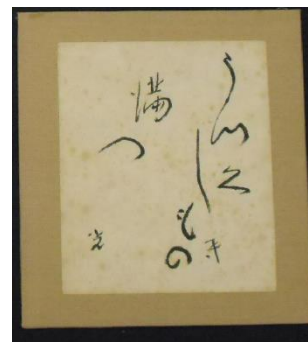 うつくしきもの
満つ
光